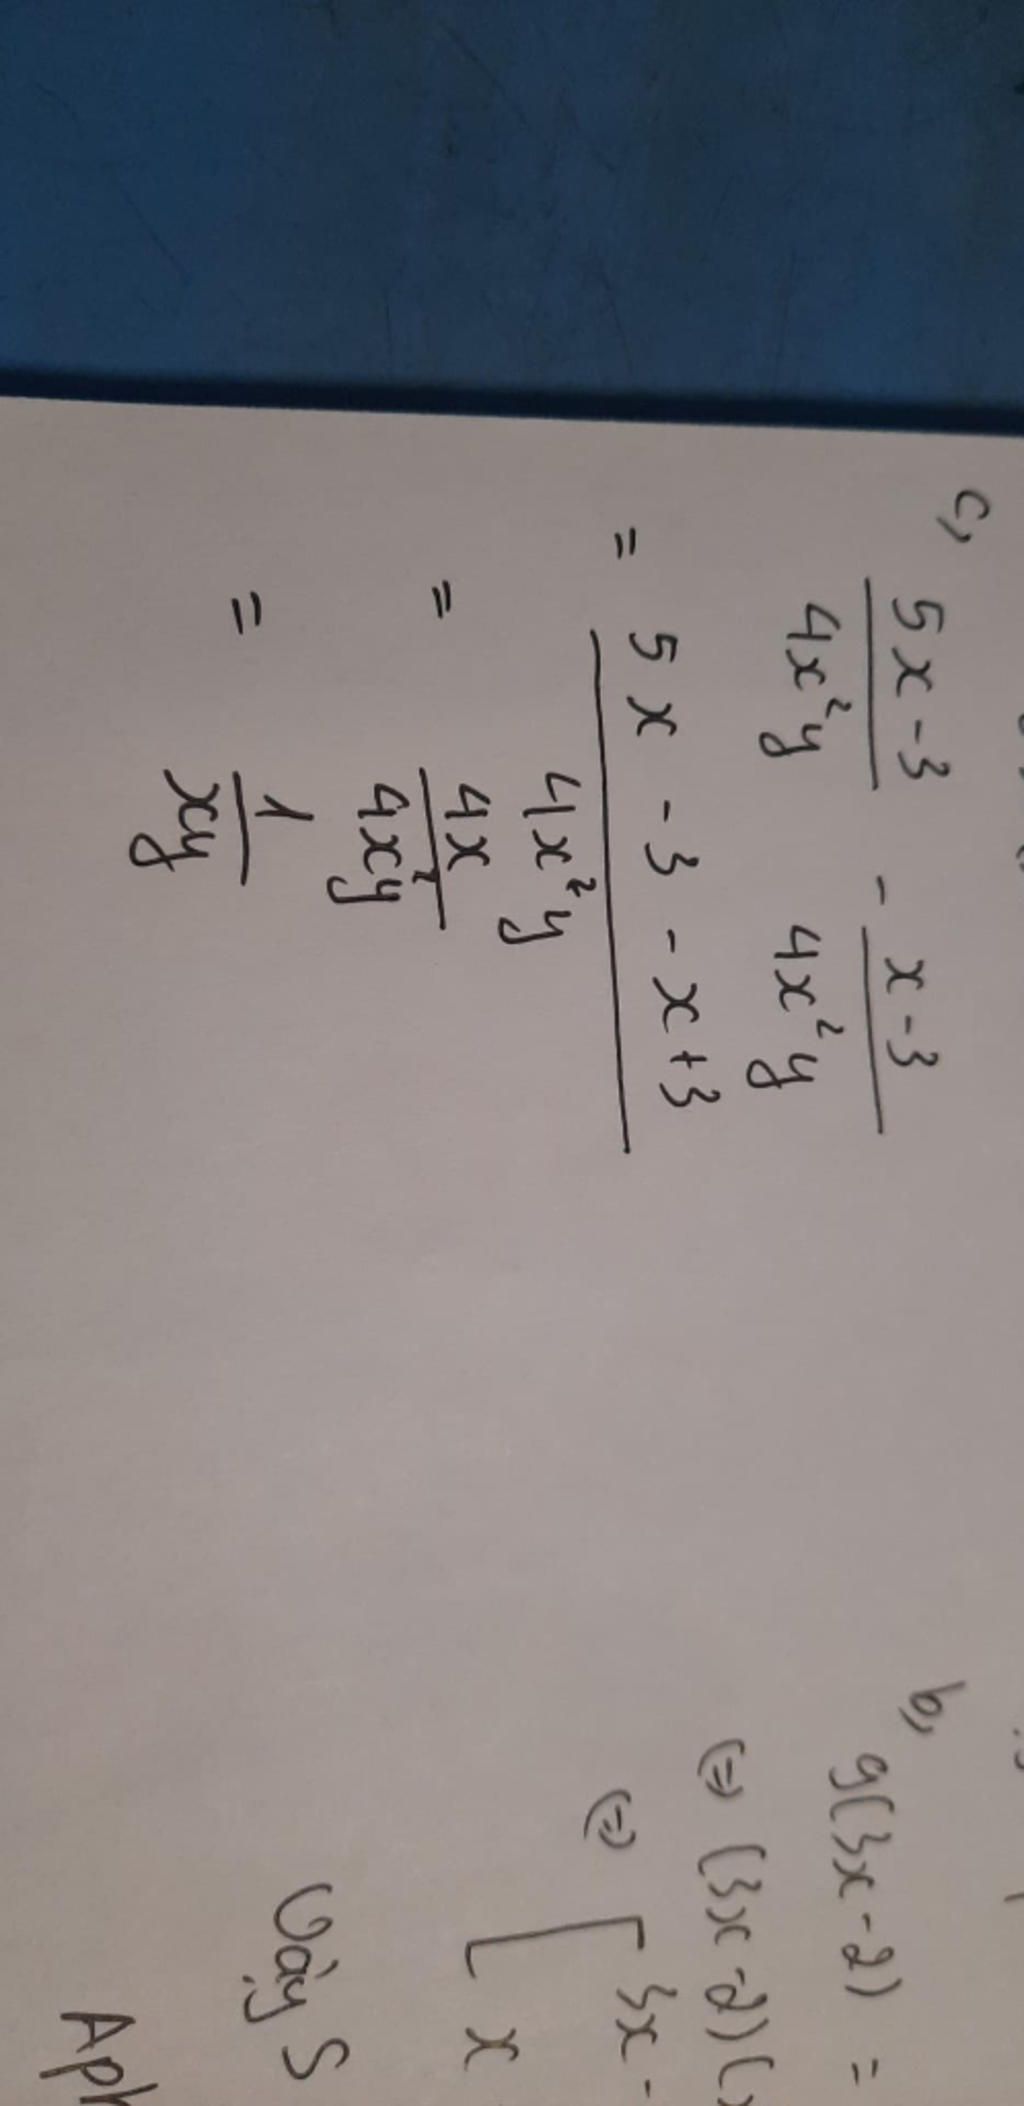 c, (5x - 3)/(4x²y) - (x - 3)/(4x²y)
= (5x - 3 - x + 3)/(4x²y)
= 4x/(4x²y)
= 1/(xy)
b, 9(3x - 2) =
(=) (3x - 2)(
(=) [ 3x -
x
Vậy S